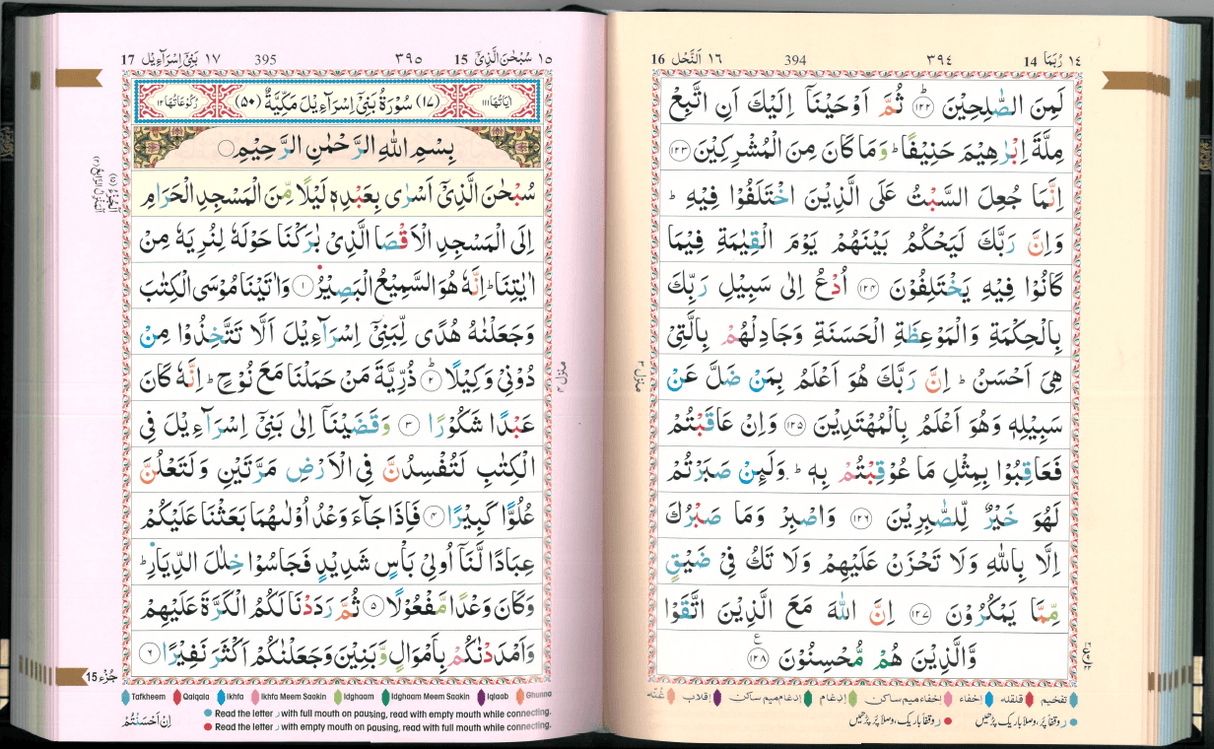 ١٤ رُبَمَا 14
٣٩٤
394
١٦ اَلنَّحْل 16
لَمِنَ الصّٰلِحِيْنَ ؕ‏﴿۱۲۲﴾ ثُمَّ اَوْحَيْنَاۤ اِلَيْكَ اَنِ اتَّبِعْ
مِلَّةَ اِبْرٰهِيْمَ حَنِيْفًا‌ ؕ وَمَا كَانَ مِنَ الْمُشْرِكِيْنَ ﴿۱۲۳﴾
اِنَّمَا جُعِلَ السَّبْتُ عَلَى الَّذِيْنَ اخْتَلَفُوْا فِيْهِ‌ ؕ
وَاِنَّ رَبَّكَ لَيَحْكُمُ بَيْنَهُمْ يَوْمَ الْقِيٰمَةِ فِيْمَا
كَانُوْا فِيْهِ يَخْتَلِفُوْنَ ﴿۱۲۴﴾ اُدْعُ اِلٰى سَبِيْلِ رَبِّكَ
بِالْحِكْمَةِ وَالْمَوْعِظَةِ الْحَسَنَةِ وَجَادِلْهُمْ بِالَّتِىْ
هِىَ اَحْسَنُ‌ؕ اِنَّ رَبَّكَ هُوَ اَعْلَمُ بِمَنْ ضَلَّ عَنْ
سَبِيْلِهٖ‌ وَهُوَ اَعْلَمُ بِالْمُهْتَدِيْنَ ﴿۱۲۵﴾ وَاِنْ عَاقَبْتُمْ
فَعَاقِبُوْا بِمِثْلِ مَا عُوْقِبْتُمْ بِهٖ‌ؕ وَلَئِنْ صَبَرْتُمْ
لَهُوَ خَيْرٌ لِّلصّٰبِرِيْنَ ﴿۱۲۶﴾ وَاصْبِرْ وَمَا صَبْرُكَ
اِلَّا بِاللّٰهِ‌ وَلَا تَحْزَنْ عَلَيْهِمْ وَلَا تَكُ فِىْ ضَيْقٍ
مِّمَّا يَمْكُرُوْنَ ﴿۱۲۷﴾ اِنَّ اللّٰهَ مَعَ الَّذِيْنَ اتَّقَوْا
وَّالَّذِيْنَ هُمْ مُّحْسِنُوْنَ ﴿۱۲۸﴾
منزل ٣
تفخیم قلقله إخفاء إخفاء میم ساكن إدغام إدغام میم ساكن إقلاب غُنّه
ر وقفًا پُر، وصلًا باریک پڑھیں ر وقفًا باریک، وصلًا پُر پڑھیں
١٥ سُبْحٰنَ الَّذِيْٓ 15
٣٩٥
395
١٧ بَنِيْٓ اِسْرَآءِيْل 17
اٰيَاتُهَا ١١١
(١٧) سُوْرَةُ بَنِيْٓ اِسْرَآءِيْلَ مَكِّيَّةٌ (٥٠)
رُكُوْعَاتُهَا ١٢
بِسْمِ اللّٰهِ الرَّحْمٰنِ الرَّحِيْمِ
سُبْحٰنَ الَّذِىْۤ اَسْرٰى بِعَبْدِهٖ لَيْلًا مِّنَ الْمَسْجِدِ الْحَرَامِ
اِلَى الْمَسْجِدِ الْاَقْصَا الَّذِىْ بٰرَكْنَا حَوْلَهٗ لِنُرِيَهٗ مِنْ
اٰيٰتِنَا‌ ؕ اِنَّهٗ هُوَ السَّمِيْعُ الْبَصِيْرُ ﴿۱﴾ وَاٰتَيْنَا مُوْسَى الْكِتٰبَ
وَ جَعَلْنٰهُ هُدًى لِّبَنِىْۤ اِسْرَآءِيْلَ اَلَّا تَتَّخِذُوْا مِنْ
دُوْنِىْ وَكِيْلًا ؕ‏﴿۲﴾ ذُرِّيَّةَ مَنْ حَمَلْنَا مَعَ نُوْحٍ‌ؕ اِنَّهٗ كَانَ
عَبْدًا شَكُوْرًا‏ ﴿۳﴾ وَقَضَيْنَاۤ اِلٰى بَنِىْۤ اِسْرَآءِيْلَ فِى
الْكِتٰبِ لَتُفْسِدُنَّ فِى الْاَرْضِ مَرَّتَيْنِ وَلَتَعْلُنَّ
عُلُوًّا كَبِيْرًا ﴿۴﴾ فَاِذَا جَآءَ وَعْدُ اُوْلٰٮهُمَا بَعَثْنَا عَلَيْكُمْ
عِبَادًا لَّنَاۤ اُولِىْ بَاْسٍ شَدِيْدٍ فَجَاسُوْا خِلٰلَ الدِّيَارِ ؕ
وَكَانَ وَعْدًا مَّفْعُوْلًا ﴿۵﴾ ثُمَّ رَدَدْنَا لَكُمُ الْكَرَّةَ عَلَيْهِمْ
وَاَمْدَدْنٰـكُمْ بِاَمْوَالٍ وَّبَنِيْنَ وَجَعَلْنٰكُمْ اَكْثَرَ نَفِيْرًا ﴿۶﴾
منزل ٤
جُزْء 15
Tafkheem Qalqala Ikhfa Ikhfa Meem Saakin Idghaam Idghaam Meem Saakin Iqlaab Ghunna
Read the letter ر with full mouth on pausing, read with empty mouth while connecting.
Read the letter ر with empty mouth on pausing, read with full mouth while connecting.
اِنْ اَحْسَنْتُمْ